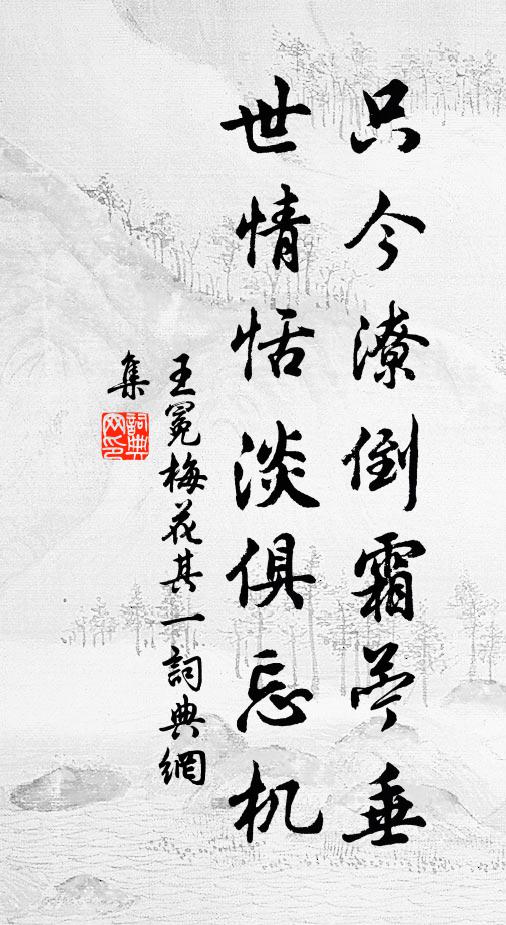 只今潦倒霜垂
世情恬淡俱忘机
王冕梅花其一詞典網
集
詞典
网印